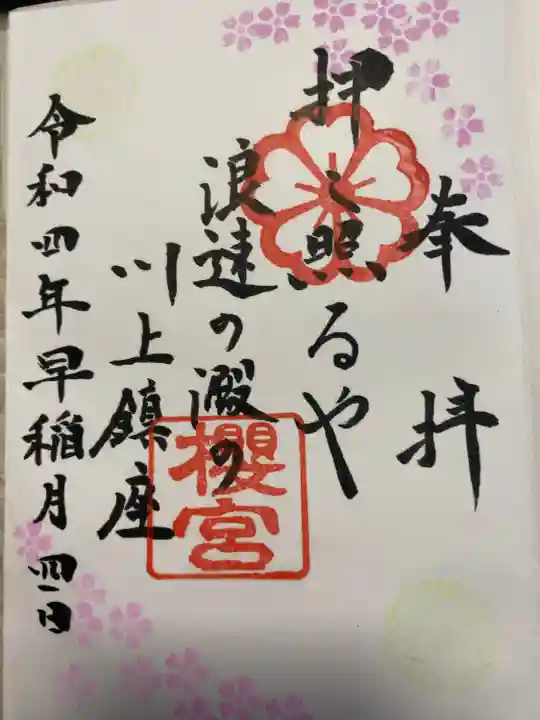 奉拝
押之照るや
浪速の澱の
川上鎮座
令和四年早稲月四日
櫻宮